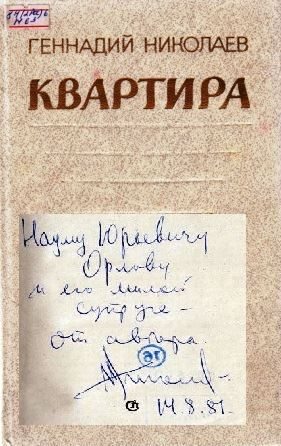 ГЕННАДИЙ НИКОЛАЕВ
КВАРТИРА
Науму Юрьевичу
Орлову
и его милой
супруге –
от автора.
14.8.81